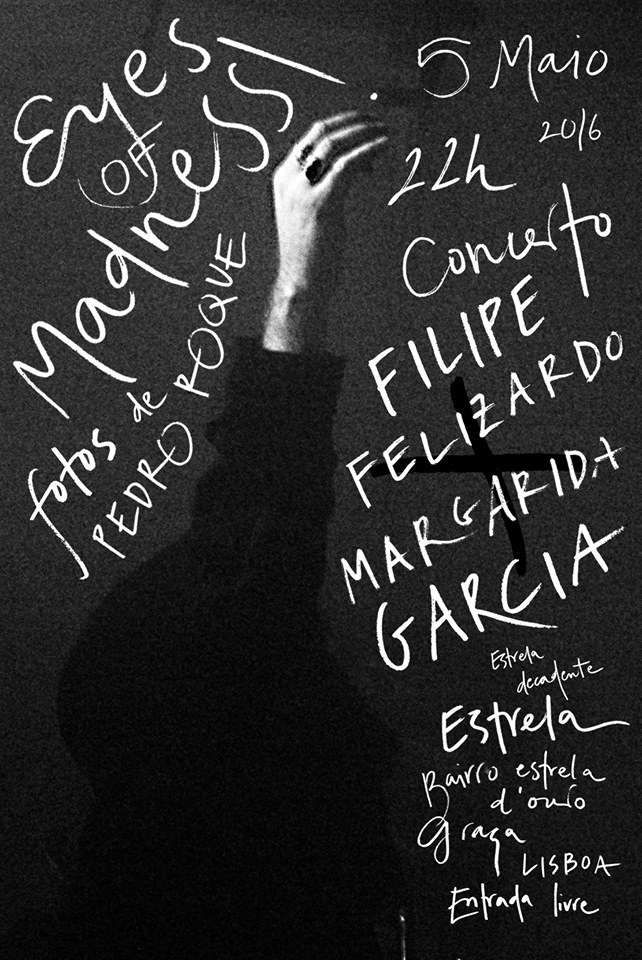 Eyes
OF
Madness!
fotos de
PEDRO ROQUE
5 Maio
2016
22h
Concerto
FILIPE
FELIZARDO
+
MARGARIDA
GARCIA
Estrela
decadente
Estrela
Bairro estrela
d'ouro
graça
LISBOA
Entrada livre